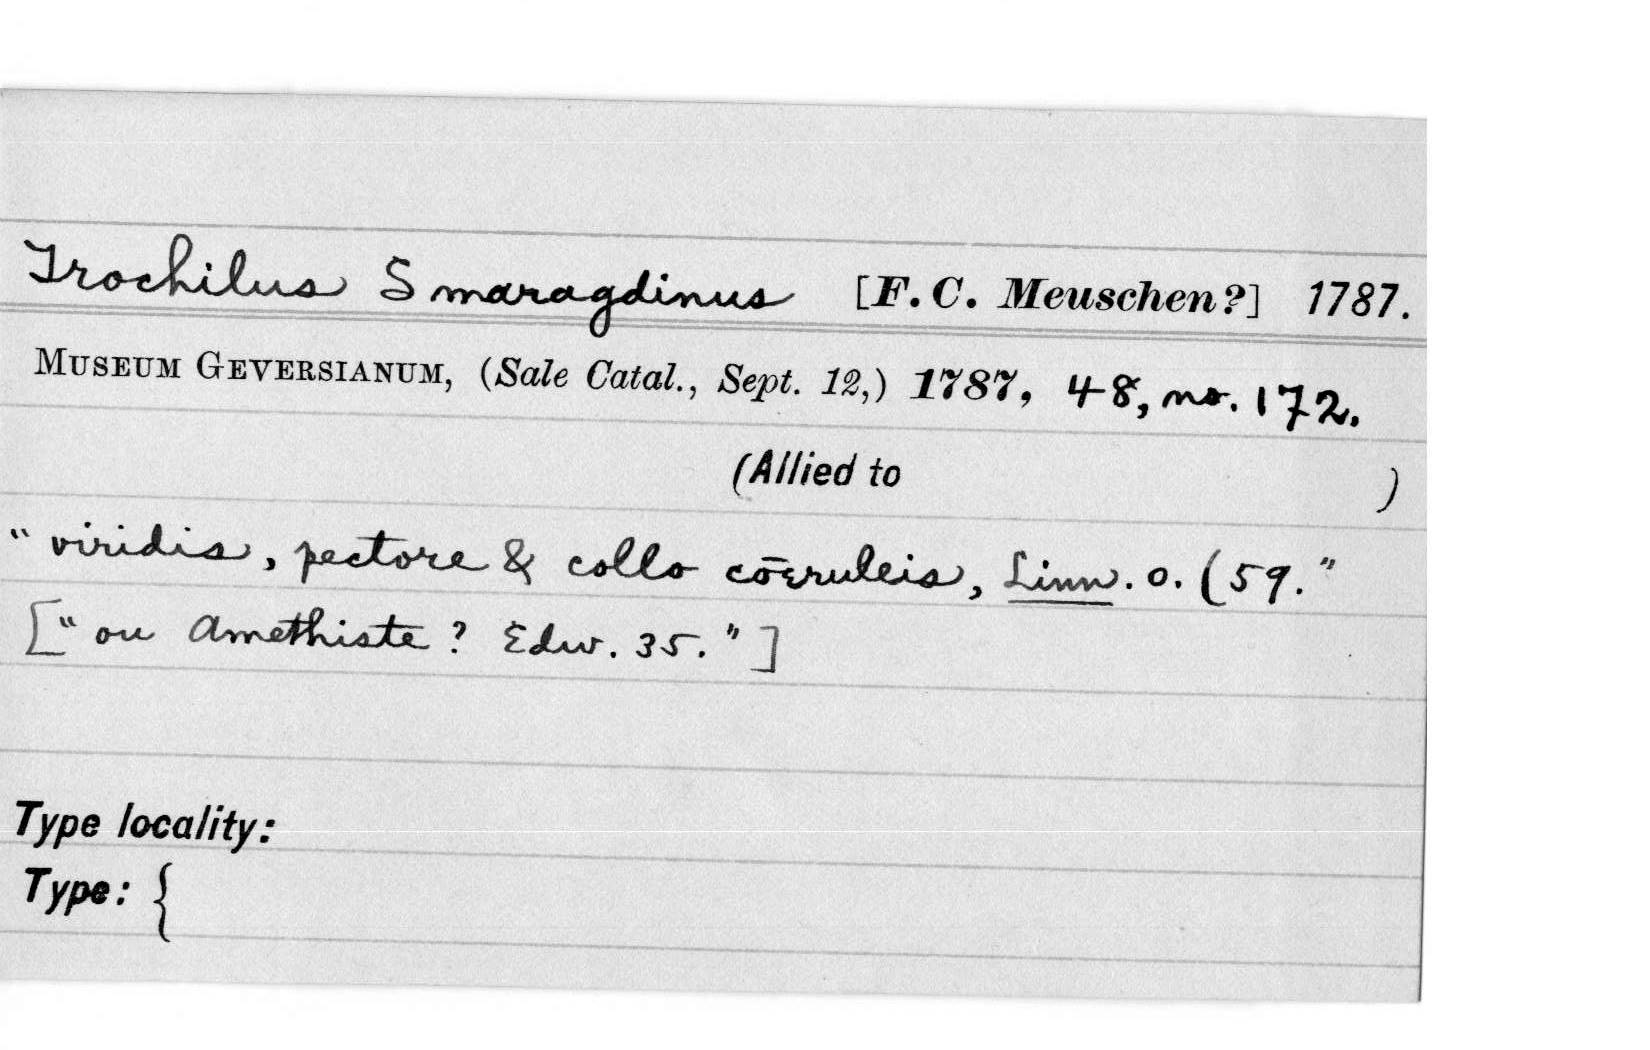 Trochilus Smaragdinus [F. C. Meuschen?] 1787.
MUSEUM GEVERSIANUM, (Sale Catal., Sept. 12,) 1787, 48, no. 172.
(Allied to )
"viridis, pectore & collo cōeruleis, Linn. o. (59."
["ou Amethiste? Edw. 35."]
Type locality:
Type: {